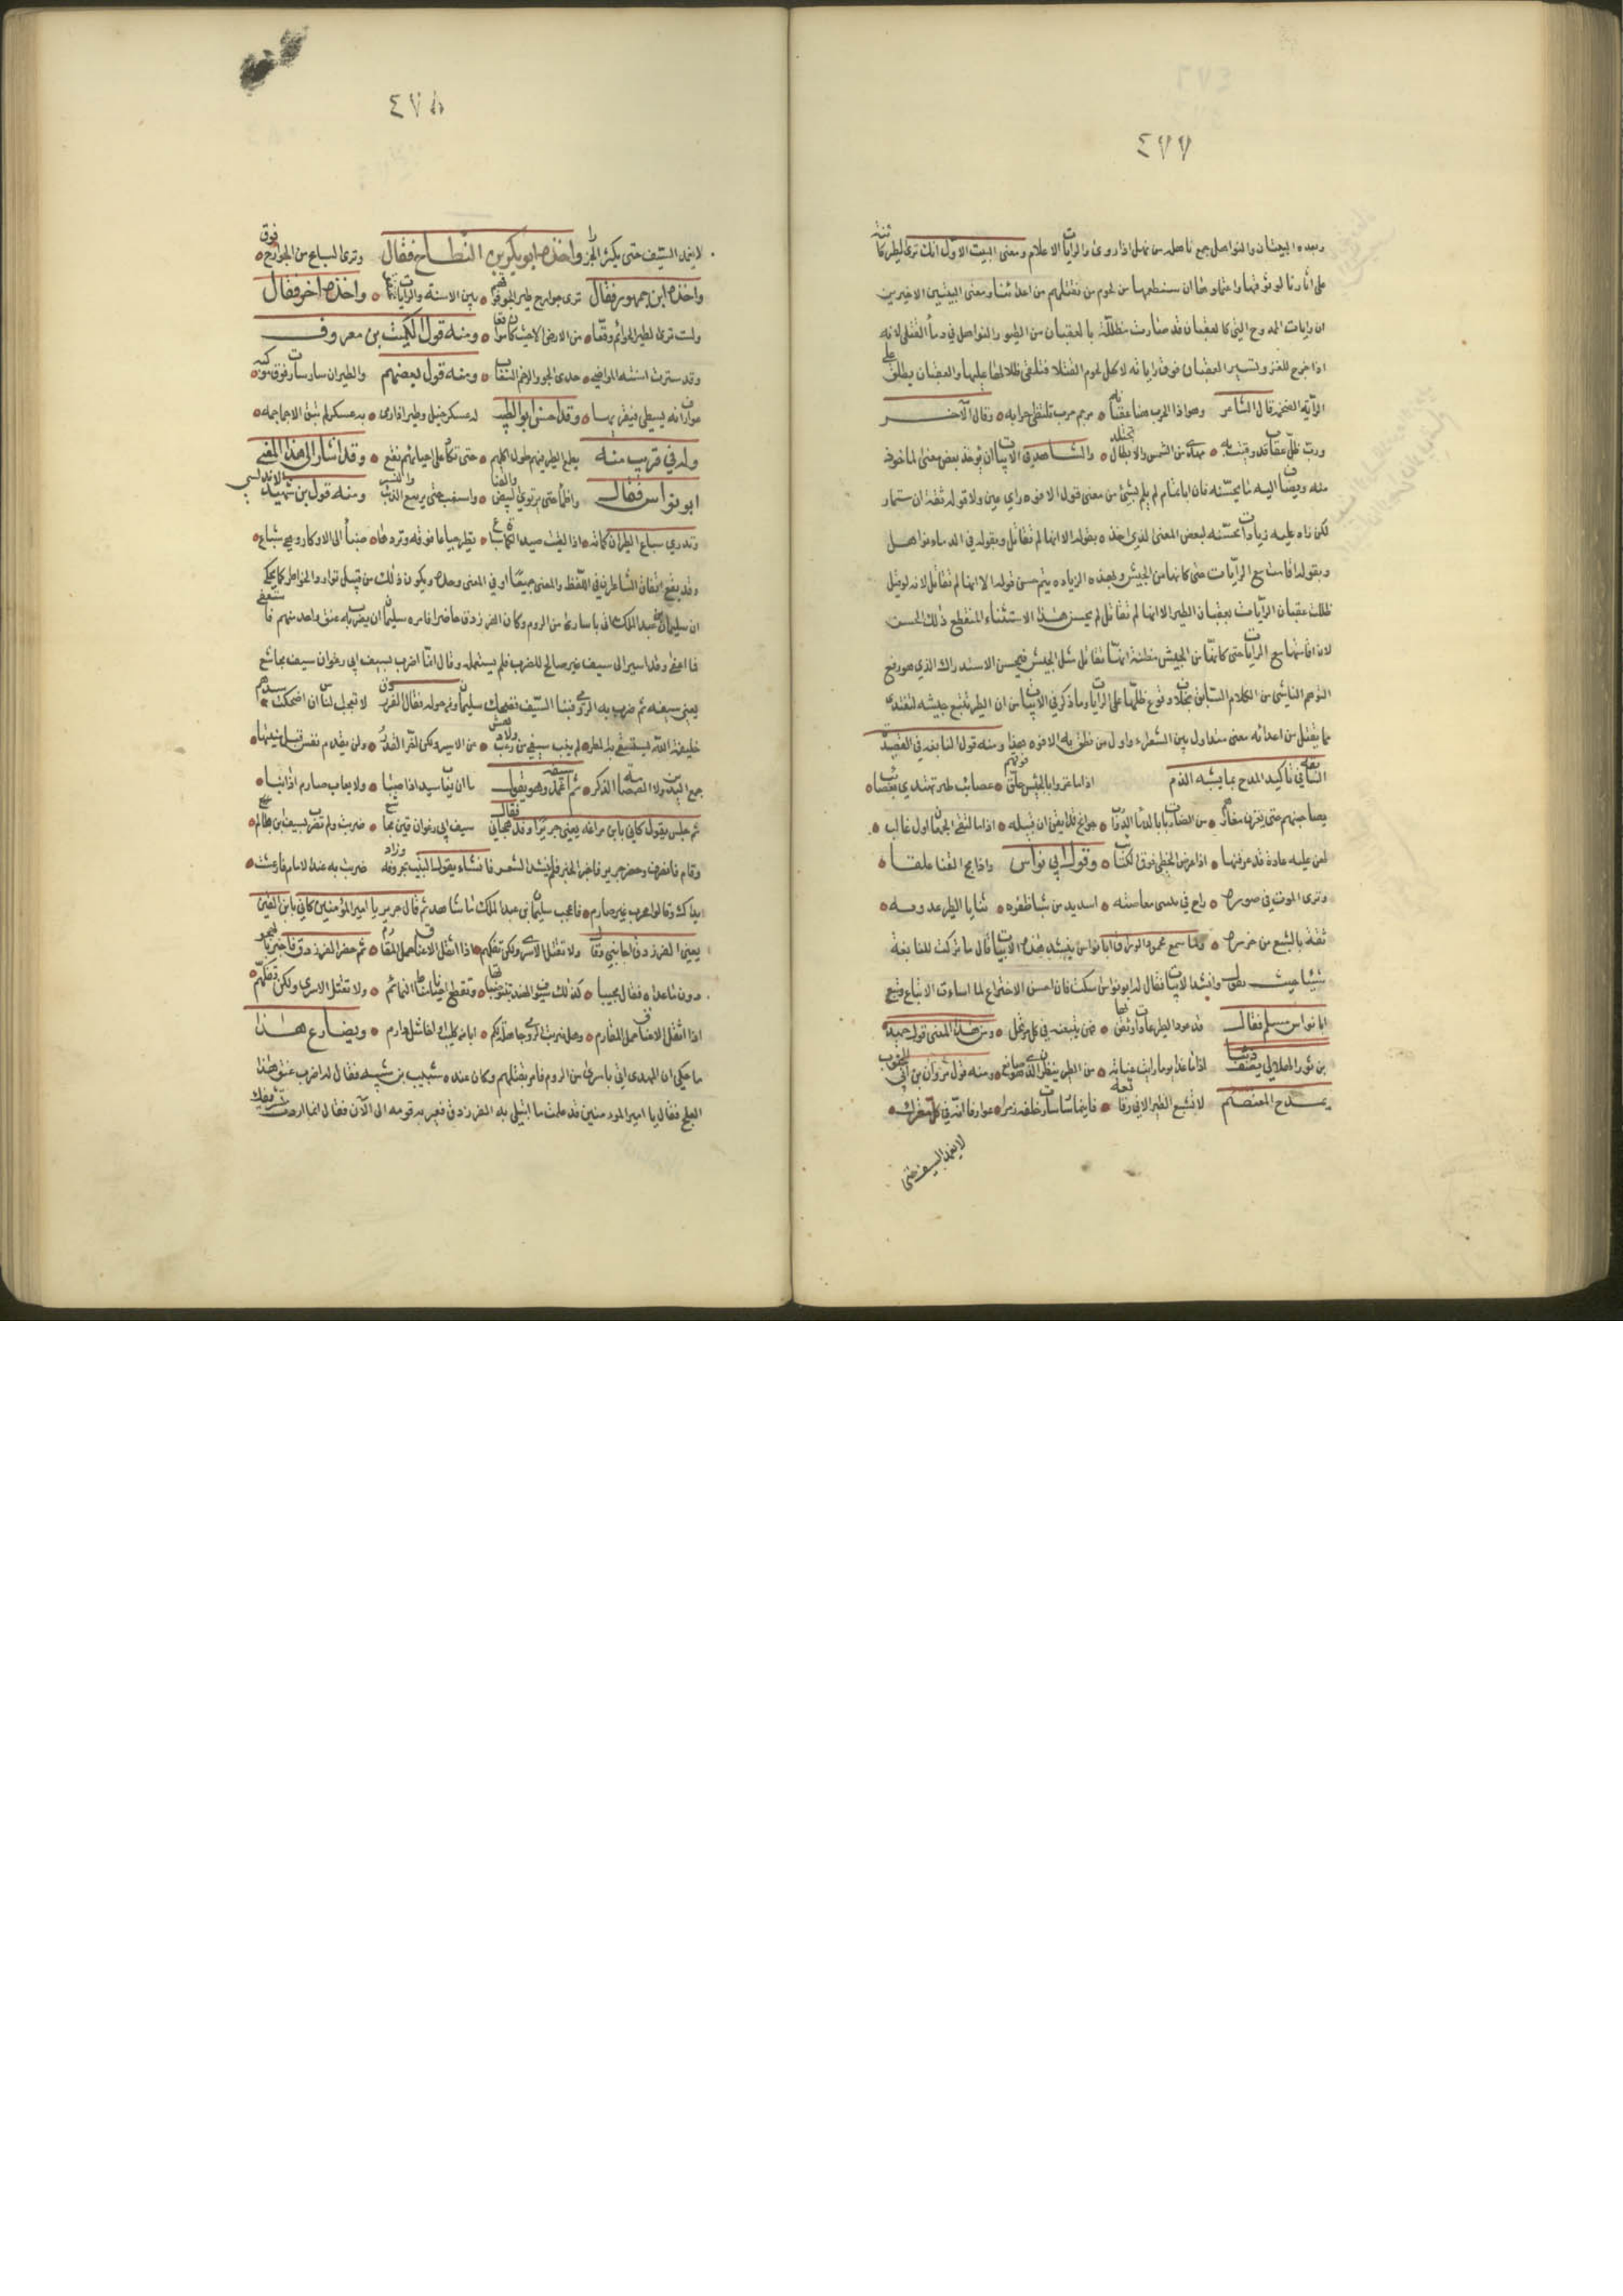 ٤٧٧
وبعده البيتان والنواهل جمع ناهلة من نهل اذا روى والرايات الاعلام ومعنى البيت الاول انك ترى الطير كائنة
على اثارنا لوثوقها واعتمادها ان سنطعمها من لحوم من نقتلهم من اعدائنا ومعنى البيتين الاخيرين
ان رايات الممدوح التي كالعقبان قد صارت مظللة بالعقبان من الطيور والنواهل في دماء القتلى لانه
اذا خرج للغزو تسير العقبان فوق راياته لاكل لحوم القتلى فتلقى ظلالها عليها والعقبان يطلق على
الراية الضخمة قال الشاعر وهو اذا الحرب هفا عقابه مرجم حرب تلتظى حرابه وقال الآخر
ورب ظل عقاب قد وقيت به مهرى من الشمس والابطال تجتلد والشاهد في الابيات ان يؤخذ بعض معنى المأخوذ
منه ويضاف اليه ما يحسنه فان ابا تمام لم يلم بشئ من معنى قول الافوه راي عين ولا قوله ثقة ان ستمار
لكن زاد عليه زيادات محسنة لبعض المعنى الذي اخذه بقوله الا انها لم تقاتل وبقوله في الدماء نواهل
وبقوله اقامت مع الرايات حتى كانها من الجيش وبهذه الزيادة يتم حسن قوله الا انها لم تقاتل لانه لو قيل
ظللت عقبان الرايات بعقبان الطير الا انها لم تقاتل لم يحسن هذا الاستثناء المنقطع ذلك الحسن
لان اقامتها مع الرايات حتى كانها من الجيش مظنة انها تقاتل مثل الجيش فيحسن الاستدراك الذي هو رفع
التوهم الناشئ من الكلام السابق بخلاف وقوع ظلها على الرايات وما ذكر في الابيات من ان الطير تتبع جيشه لتغتذى
مما يقتل من اعدائه معنى متداول بين الشعراء واول من نطق به الافوه هذا ومنه قول النابغة في القصيدة
السابقة في تاكيد المدح بما يشبه الذم اذا ما غزوا بالجيش حلق فوقهم عصائب طير تهتدي بعصائب
يصاحبنهم حتى يغرن مغارهم من الضاريات بالدماء الدوارب جوانح قد ايقن ان قبيله اذا ما التقى الجمعان اول غالب
لهن عليهم عادة قد عرفنها اذا عرض الخطى فوق الكتائب وقول ابي نواس واذا مج القنا علقا
وترى الموت في صوره راح في ثنيي مفاضته اسد يدمى شبا ظفره تتأيا الطير غدوته
ثقة بالشبع من جزره ولما سمع محمود الوراق ابا نواس ينشد هذه الابيات قال ما تركت للنابغة
شيئا حيث يقول وانشد الابيات فقال له ابو نواس اسكت فان احسن الاختراع لما اساءت الاتباع وتبع
ابا نواس مسلم فقال قد عود الطير عادات وثقن بها فهن يتبعنه في كل مرتحل ومن هذا المعنى قول حميد
بن ثور الهلالي يصف ذئبا اذا ما غدا يوما رايت غيابة من الطير ينظرن الذي هو صانع ومنه قول مروان بن ابي الجنوب
يمدح المعتصم لا تشبع الطير الا في وقائعه فاينما سار سارت خلفه زمرا عوارفا انه في كل معترك
لا يغمد السيف حتى
٤٧٨
لا يغمد السيف حتى يكثر الجزرا واخذه ابو بكر بن النطاح فقال وترى السباع من الجوارح فوق
واخذه ابن جمهور فقال ترى جوارح طير الجو فوقهم بين الاسنة والرايات واخذه آخر فقال
ولست ترى الطير الحوائم وقعا من الارض الا حيث كان مواقعا ومنه قول الكميت بن معروف
وقد سترت اسنته المواضي حدى الجو والرخم السغاب ومنه قول بعضهم والطير ان سار سارت فوق موكبه
عوارفا انه يسطو فيقريها وقد احسن ابو الطيب له عسكرا خيل وطير اذا رمى به عسكرا لم تبق الا جماجمه
وله في قريب منه يطمع الطير فيهم طول اكلهم حتى تكاد على احيائهم تقع وقد اشار الى هذا المعنى
ابو نواس فقال واظمأ حتى ترتوي البيض والقنا واسغب حتى يشبع الذئب والنسر ومنه قول بن شهيد الاندلسي
وتدري سباع الطير ان كماته اذا لقيت صيد الكماة سباع تطير جياعا فوقه وتردها ظباه الى الاوكار وهي شباع
وقد يقع اتفاق الشاعرين في اللفظ والمعنى جميعا او في المعنى وحده ويكون ذلك من قبيل توارد الخواطر كما يحكى
ان سليمان بن عبد الملك اتى باسارى من الروم وكان الفرزدق حاضرا فامره سليمان ان يضرب عنق واحد منهم فاستعفى
فما اعفى وقد اشير الى سيف غير صالح للضرب فلم يستعمله وقال انما اضرب بسيف ابي رغوان سيف مجاشع
يعني سيفه ثم ضرب به الرومي فنبا السيف فضحك سليمان ومن حوله فقال الفرزدق لا تعجب الناس ان اضحكت سيدهم
خليفة الله يستسقى به المطر لم ينب سيفي من رعب ولا دهش من الاسير ولكن اخر القدر ولن يقدم نفسا قبل ميتتها
جمع اليدين ولا الصمصامة الذكر ثم اغمد سيفه وهو يقول ما ان يعاب سيد اذا صبا ولا يعاب صارم اذا نبا
ثم جلس يقول كاني بابن مراغة يعني جريرا وقد هجاني فقال سيف ابي رغوان قين مجاشع ضربت ولم تضرب بسيف ابن ظالم
وقام فانصرف وحضر جرير فاخبر الخبر فلم ينشد الشعر فانشاء يقول البيت بحروفه وزاد ضربت به عند الامام فارعشت
يداك وقالوا محدث غير صارم فاعجب سليمان بن عبد الملك ما شاهد ثم قال جرير يا امير المؤمنين كاني بابن القين
يعني الفرزدق اجابني فقال ولا نقتل الاسرى ولكن نفكهم اذا اثقل الاعناق حمل المغارم ثم حضر الفرزدق فاخبر بالهجو
دون ما عداه فقال مجيبا كذلك سيوف الهند تنبو ظباتها وتقطع احيانا مناط التمائم ولا نقتل الاسرى ولكن نفكهم
اذا اثقل الاعناق حمل المغارم وهل ضربة الرومي جاعلة لكم ابا عن كليب او اخا مثل دارم ويضارع هذا
ما حكى ان المهدى اتى باسرى من الروم فامر بقتلهم وكان عنده شبيب بن شيبة فقال له اضرب عنق هذا
العلج فقال يا امير المؤمنين قد علمت ما ابتلى به الفرزدق فعير به قومه الى الآن فقال انما اردت تشريفك